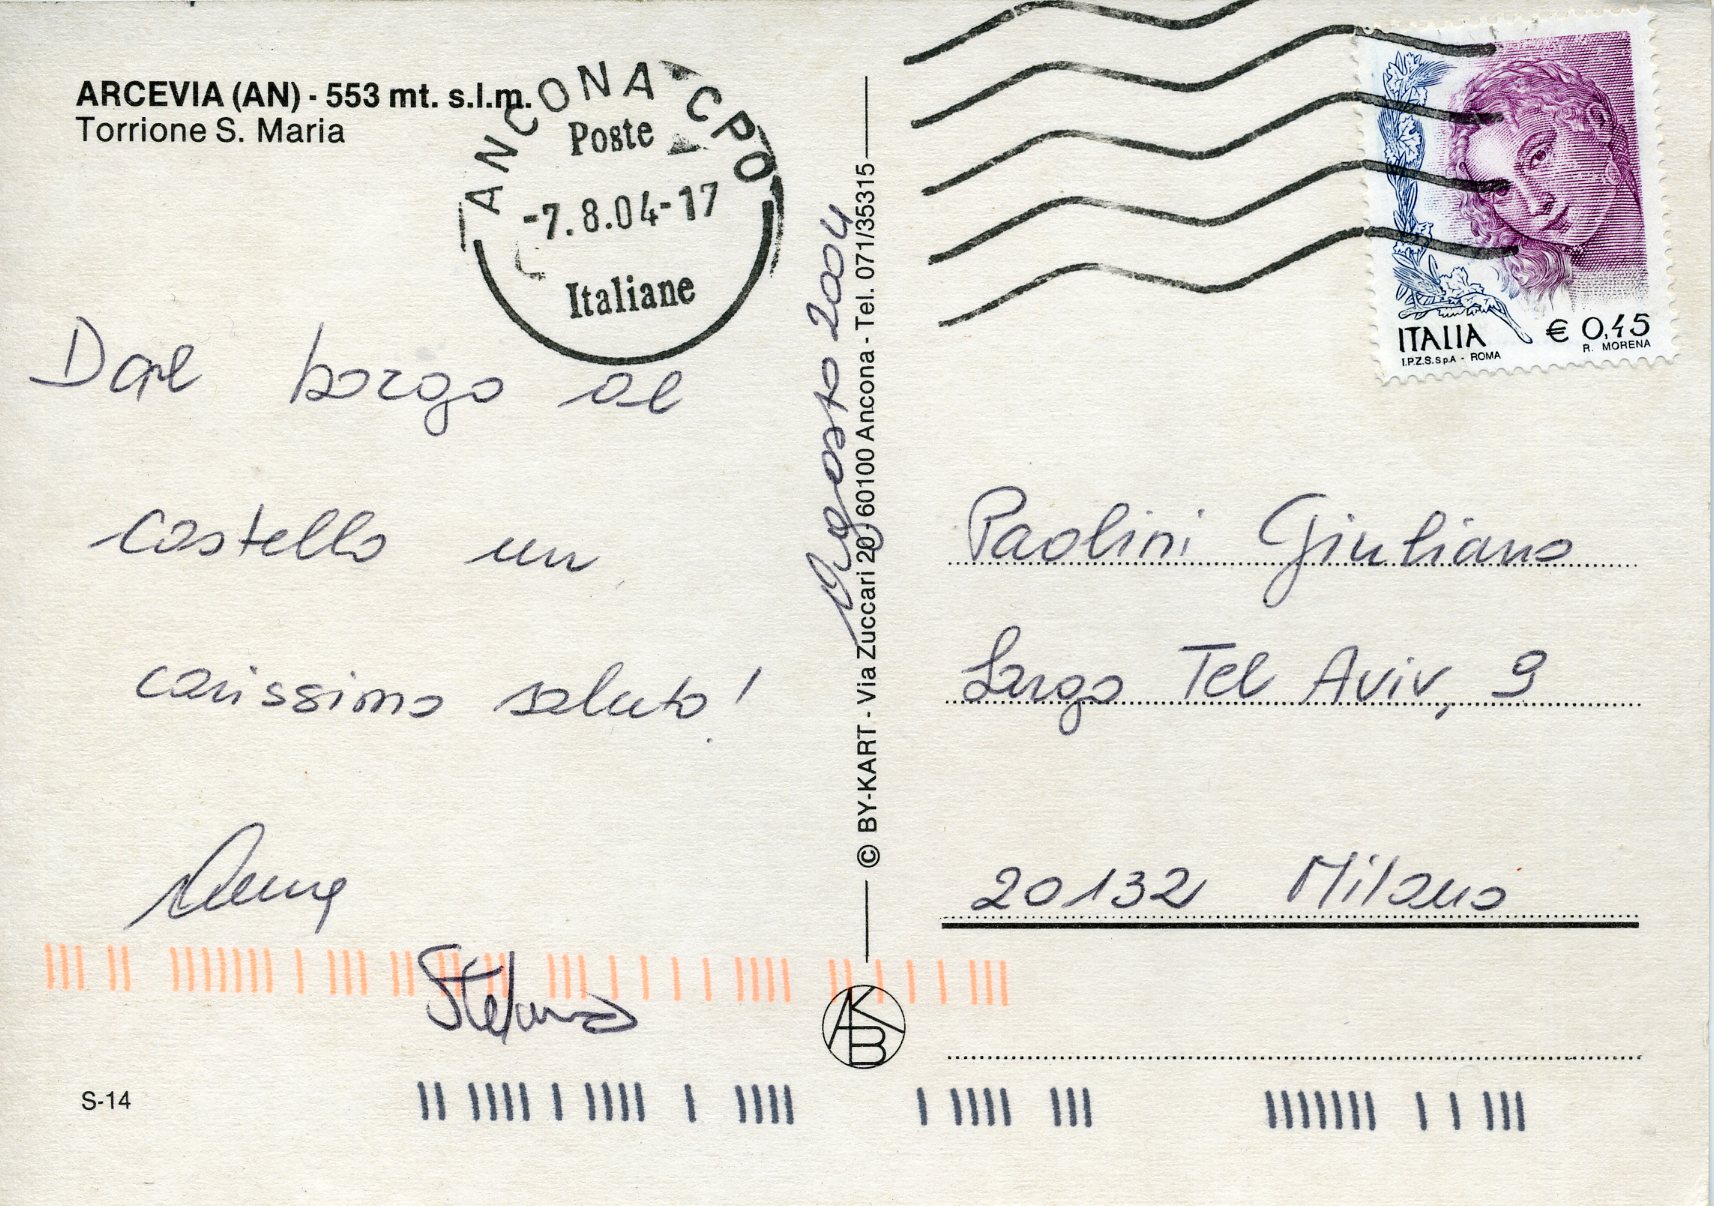 ARCEVIA (AN) - 553 mt. s.l.m.
Torrione S. Maria
ANCONA CPO
Poste
-7.8.04-17
Italiane
ITALIA € 0,45
I.P.Z.S. S.p.A. - ROMA R. MORENA
Dal borgo al
castello un
carissimo saluto!
Anna
Stefano
Agosto 2004
© BY-KART - Via Zuccari 20 - 60100 Ancona - Tel. 071/35315
Paolini Giuliano
Largo Tel Aviv, 9
20132 Milano
AKB
S-14